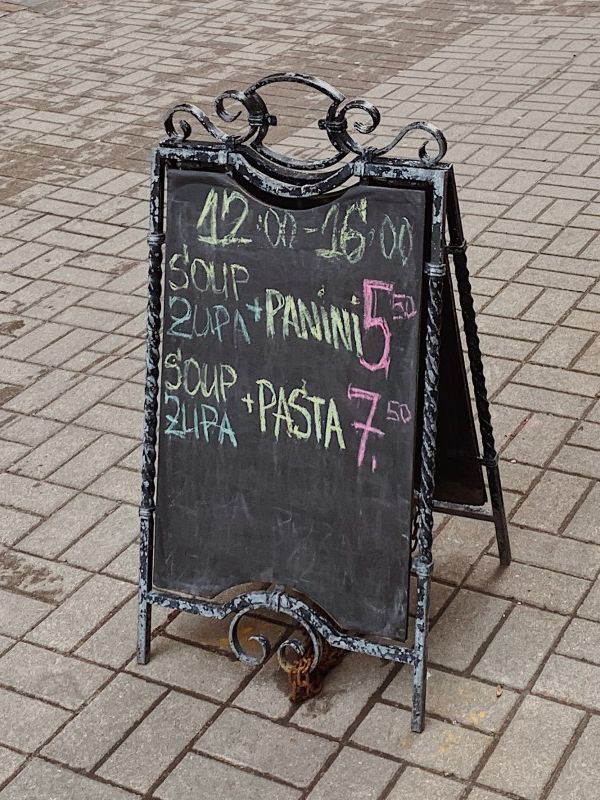 12:00-16:00
SOUP
ZUPA + PANINI 5 50
SOUP
ZUPA + PASTA 7,50